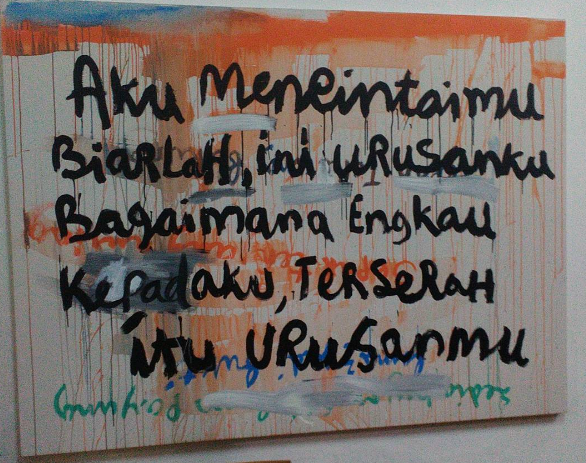 Aku Mencintaimu
BiaRLaH, ini uRuSanKu
Bagaimana Engkau
Kepadaku, TeRSeRaH
itu URuSanmu